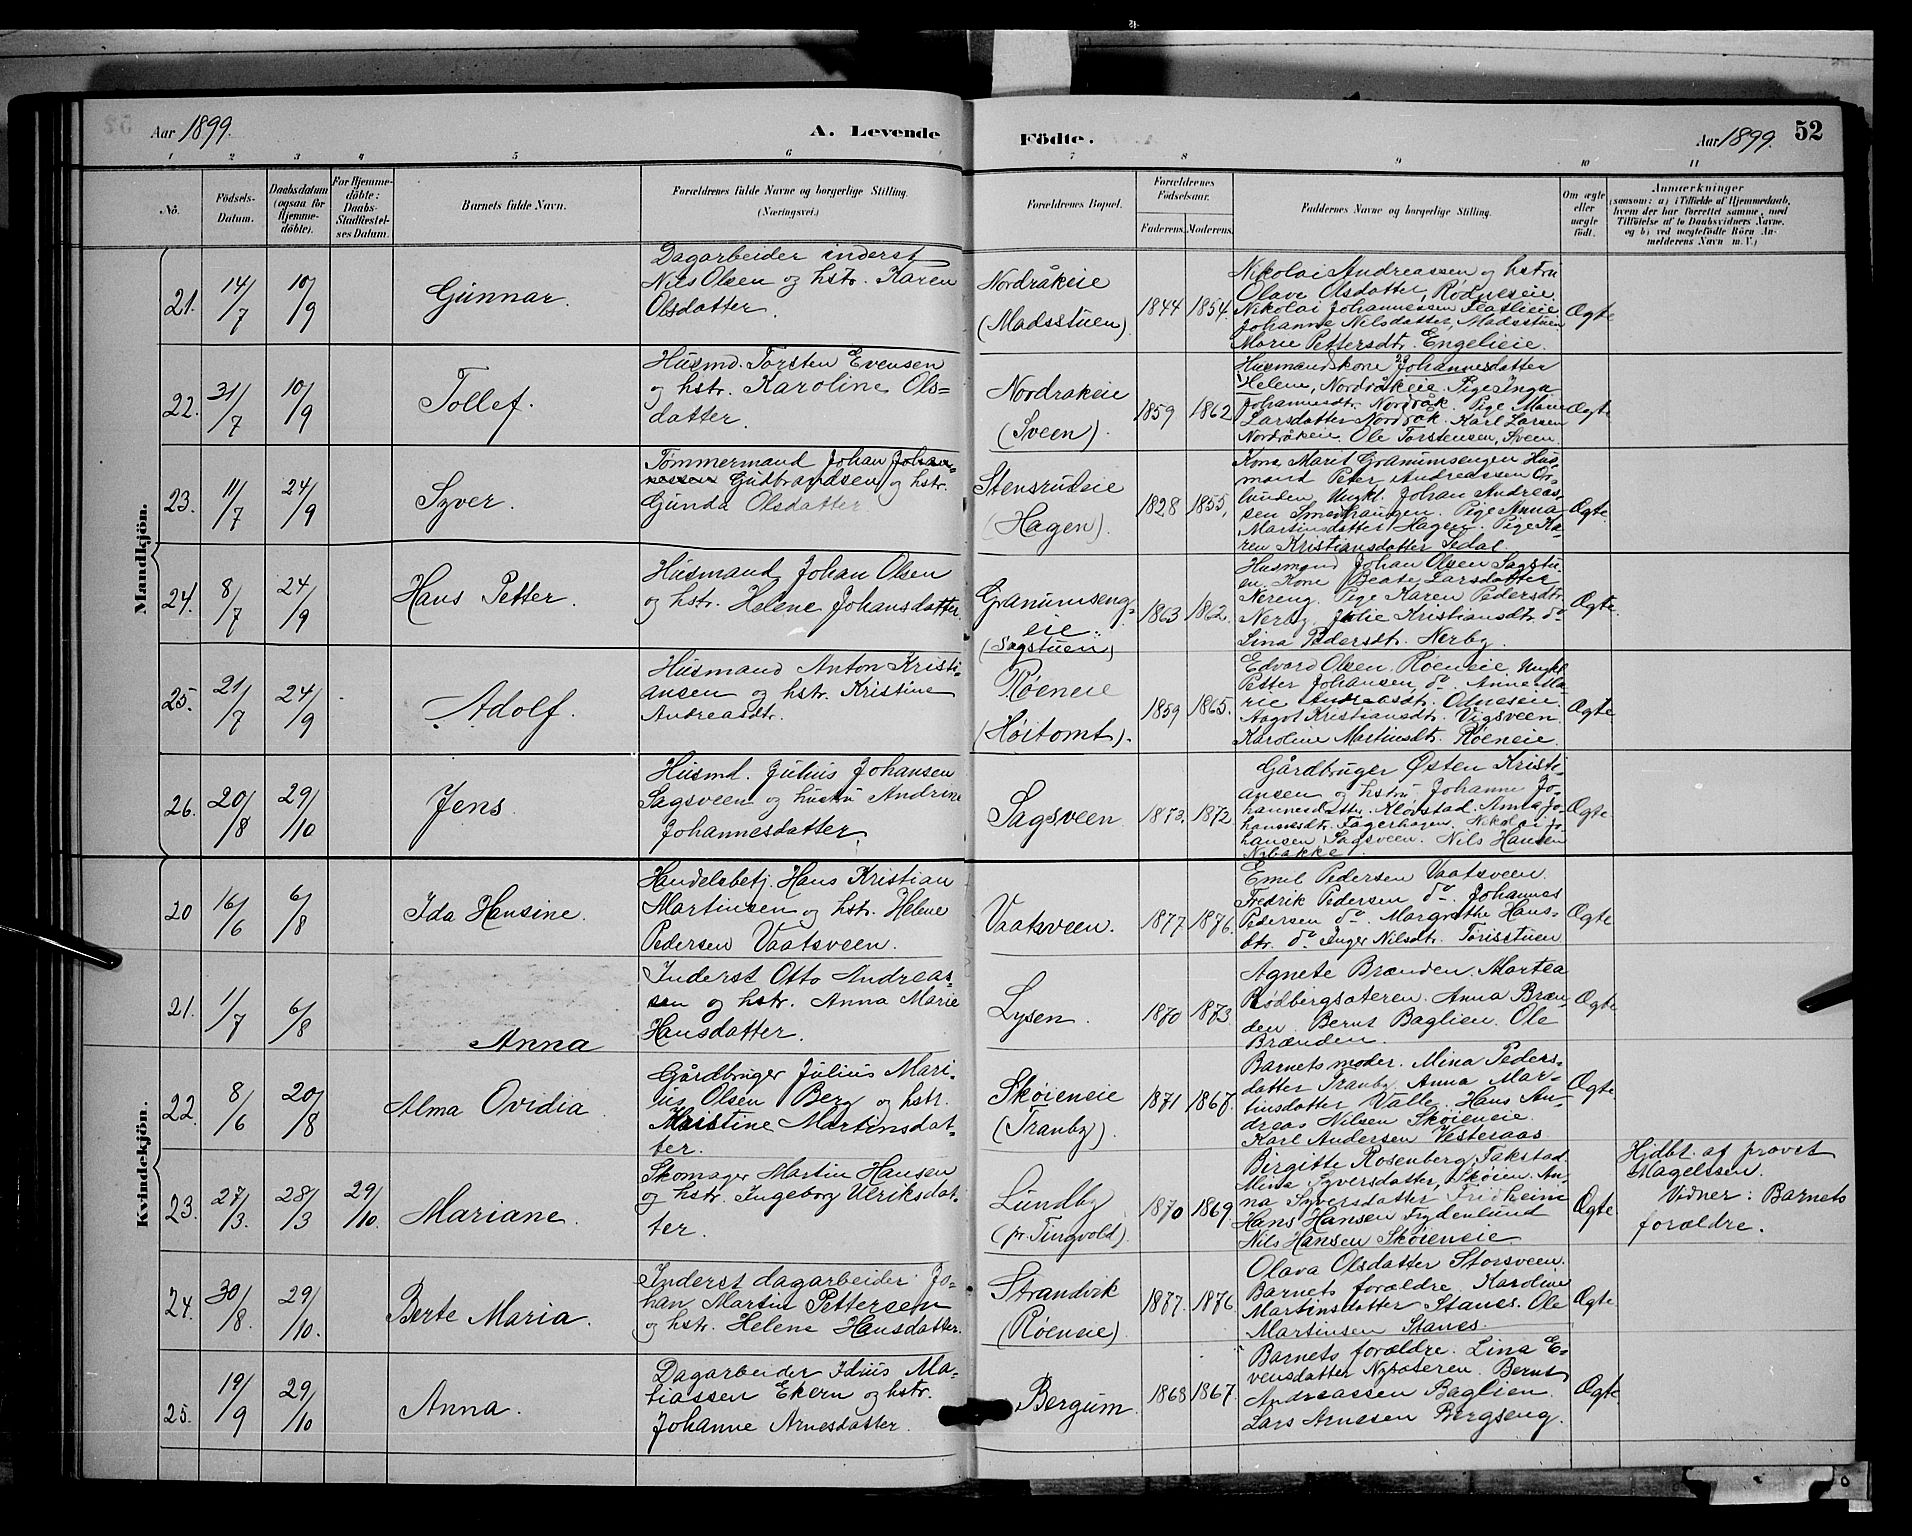 Aar 1899.
A. Levende
Födte.
Aar 1899.
52
1 2 3 4 5 6 7 8 9 10 11
No.
Födsels-Datum.
Daabsdatum (ogsaa for Hjemme-döbte).
For Hjemme-döbte: Daabs-Stadfæstel-ses Datum.
Barnets fulde Navn.
Forældrenes fulde Navne og borgerlige Stilling. (Næringsvei.)
Forældrenes Bopæl.
Forældrenes Födselsaar.
Faderens. Moderens.
Faddernes Navne og borgerlige Stilling.
Om ægte eller uægte födt.
Anmærkninger
(saasom: a) i Tilfælde af Hjemmedaab, hvem der har forrettet samme, med Tilföielse af to Daabsvidners Navne, og b) ved uægtefödte Börn Anmelderens Navn m. V.)
Mandkjön.
21. 14/7 10/9 Gunnar.
Dagarbeider inderst
Nils Olsen og hstr. Karen
Olsdatter.
Nordråkeie
(Madsstuen)
1844 1854.
Nikolai Andreassen og hstru
Olave Olsdatter, Rødneseie
Nikolai Johannessen Flatlieie
Johanne Nilsdatter, Madsstuen
Marie Pettersdtr. Engelieie.
Ægte
22. 31/7 10/9 Tollef.
Husmd. Torsten Evensen
og hstr. Karoline Ols=
datter.
Nordrakeie
(Sveen).
1859 1862
Husmandskone Johannesdatter
Helene, Nordråkeie. Pige Inga
Johannesdtr. Nordråk. Pige Marie
Larsdatter Nordråk. Karl Larsen
Nordråkeie. Ole Torstensen, Sveen.
Ægte
23. 11/7 24/9 Syver.
Tømmermand Johan Johan-
nessen Gudbrandsen og hstr.
Gunda Olsdatter
Stensrudeie
(Hagen).
1828 1855,
Kone Marit Granumsengen Hus-
mand Peter Andreassen
Ungkl. Johan Andreas-
sen Smedhaugen. Pige Anna
Martinsdatter Hagen. Pige Ka-
ren Kristiansdatter Sedal.
Ægte.
24. 8/7 24/9 Hans Petter.
Husmand Johan Olsen
og hstr. Helene Johansdatter
Granumseng-
eie.
(Sagstuen)
1863 1862.
Husmand Johan Olsen Sagstu-
en. Kone Beate Larsdatter
Nereng. Pige Karen Pedersdtr.
Nerby. Julie Kristiansdtr. do
Lina Pedersdtr. Nerby.
Ægte.
25. 21/7 24/9 Adolf.
Husmand Anton Kristi-
ansen og hstr. Kristine
Andreasdtr.
Røeneie
(Høitomt).
1859 1865.
Edvard Olsen, Røeneie Ungkl
Petter Johansen do. Anne Ma-
rie Andreasdtr. Odneseie.
Aagot Kristiansdtr. Vigsveen
Karoline Martinsdtr. Røeneie.
Ægte
26. 20/8 29/10 Jens
Husmd. Julius Johansen
Sagsveen og hustru Andrine
Johannesdatter
Sagsveen
1873. 1872.
Gårdbruger Østen Kristi-
ansen og hstru Johanne Jo-
hannesdatter Klevstad. Anna Jo-
hannesdtr. Fagerhagen. Nikolai Jo-
hansen Sagsveen. Nils Hansen
Nybakke.
Ægte
Kvindekjön.
20 16/6 6/8 Ida Hansine.
Handelsbetj. Hans Kristian
Martinsen og hstr. Helene
Pedersen Vaatsveen.
Vaatsveen.
1877 1876.
Emil Pedersen Vaatsveen.
Fredrik Pedersen do. Johannes
Pedersen do. Margrethe Hans-
dtr. do Inger Nilsdtr. Torisstuen
Ægte
21. 1/7 6/8 Anna
Inderst Otto Andreas-
sen og hstr. Anna Marie
Hansdatter.
Lysen.
1870 1873.
Agnete Brænden. Martea
Rødbergsæteren. Anna Bræn-
den. Bernt Baglien. Ole
Brænden.
Ægte
22. 8/6 20/8 Alma Ovidia
Gårdbruger Julius Mari-
us Olsen Berg og hstr.
Kristine Martinsdat-
ter.
Skøieneie
(Tranby).
1871 1867.
Barnets moder. Mina Peders-
datter Tranby. Anna Mar-
tinsdatter Valle. Hans An-
dreas Nilsen Skøieneie.
Karl Andersen Vesteraas
Ægte
23. 27/3. 28/3 29/10. Mariane.
Skomager Martin Hansen
og hstr. Ingeborg Ulriksdat-
ter.
Lundby
(pr Tingvold).
1870 1869.
Birgitte Rosenberg Fakstad
Mina Syversdatter, Skøien. An-
na Syversdatter Fridheim
Hans Hansen Frydenlund
Nils Hansen Skøieneie
Ægte
Hjdbt. af provst
Magelssen.
Vidner: Barnets
forældre.
24. 30/8. 29/10. Berte Maria.
Inderst dagarbeider Jo-
han Martin Pettersen
og hstr. Helene Hansdatter.
Strandvik
(Røeneie)
1877. 1876.
Olava Olsdatter Storsveen.
Barnets forældre. Karoline
Martinsdatter Stanes. Ole
Martinsen Stanes.
Ægte
25. 19/9 29/10 Anna.
Dagarbeider Idius Ma-
tiassen Ekern og hstr.
Johanne Arnesdatter.
Bergum
1868 1867.
Barnets forældre. Lina E-
vensdatter Nysæteren. Bernt
Andreassen Baglien.
Lars Arnesen Bergseng.
Ægte.